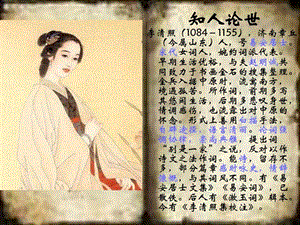 知人论世
李清照（1084－1155），济南章丘
（今属山东）人，号易安居士。
宋代女词人，婉约词派代表。
早期生活优裕，与夫赵明诚共
同致力于书画金石的搜集整理。
金兵入据中原，
所作词，前期多
后期多悲叹身世，
情调感伤，
形式上善用白描手法，
语言清丽。论词强调
协律，崇尚典雅，
“别是一家”之说，反对以作
诗文之法作词。能诗，留存不
多，部分篇章感时咏史，情辞
慷慨，与其词风不同。有《易
安居士文集》《易安词》，已
散佚。后人有《漱玉词》辑本。
今有《李清照集校注》。